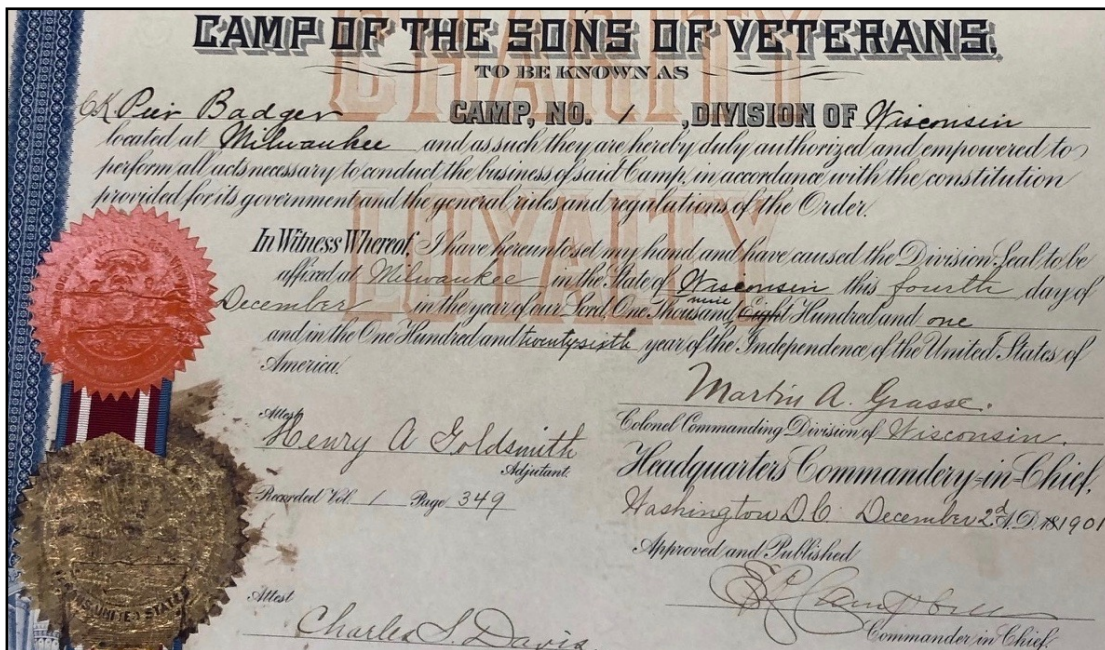 CHARITY
CAMP OF THE SONS OF VETERANS,
TO BE KNOWN AS
CK Pier Badger CAMP, NO. 1, DIVISION OF Wisconsin
located at Milwaukee and as such they are hereby duly authorized and empowered to
perform all acts necessary to conduct the business of said Camp, in accordance with the constitution
provided for its government and the general rules and regulations of the Order.
LOYALTY
In Witness Whereof, I have hereunto set my hand and have caused the Division Seal to be
affixed at Milwaukee in the State of Wisconsin this fourth day of
December in the year of our Lord One Thousand, Eight nine Hundred and one
and in the One Hundred and twentysixth year of the Independence of the United States of
America.
Martin A. Grasse.
Colonel Commanding Division of Wisconsin.
Attest
Henry A Goldsmith
Adjutant.
Recorded Vol. 1 Page 349
Headquarters Commandery-in-Chief,
Washington D.C. December 2d A.D. 1901
Approved and Published
E R Campbell
Commander in Chief.
Attest
Charles S. Davis.
UNITED STATES